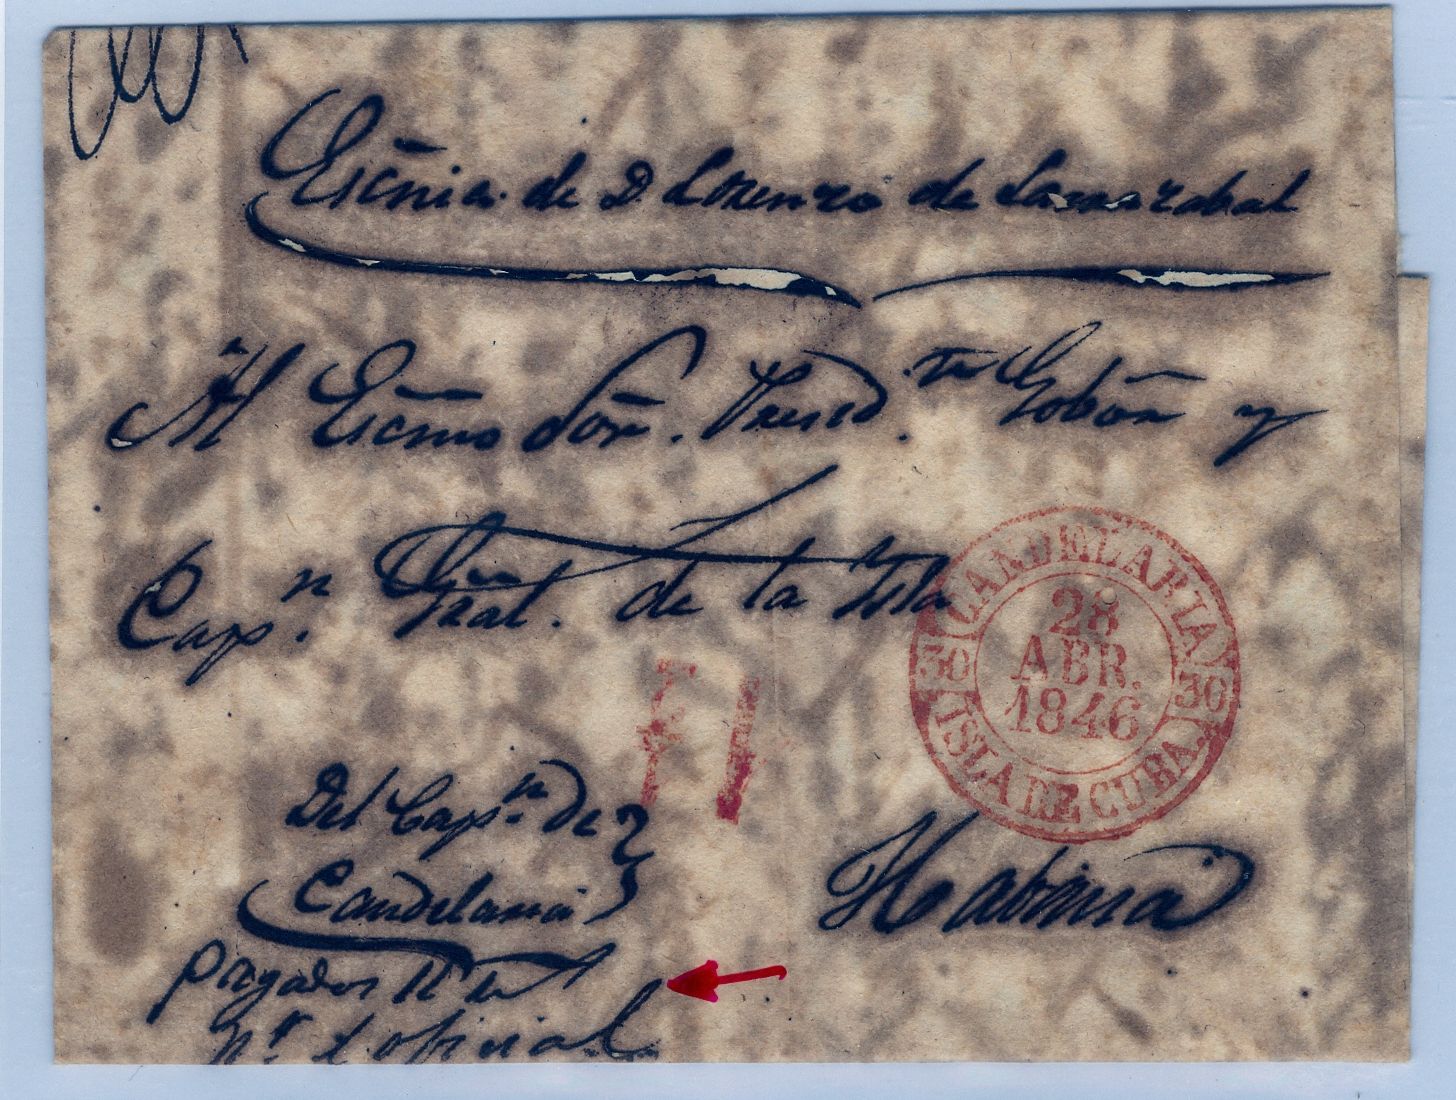 Escñia. de D. Lorenzo de Larrazabal
Al Escmo Sôr. Presid.te Gobôr y
Cap.n Gral. de la Isla
CANDELARIA
28
ABR.
1846
30 30
ISLA DE CUBA
Del Cap.n de
Candelaria
Habana
pagados 11
oficial